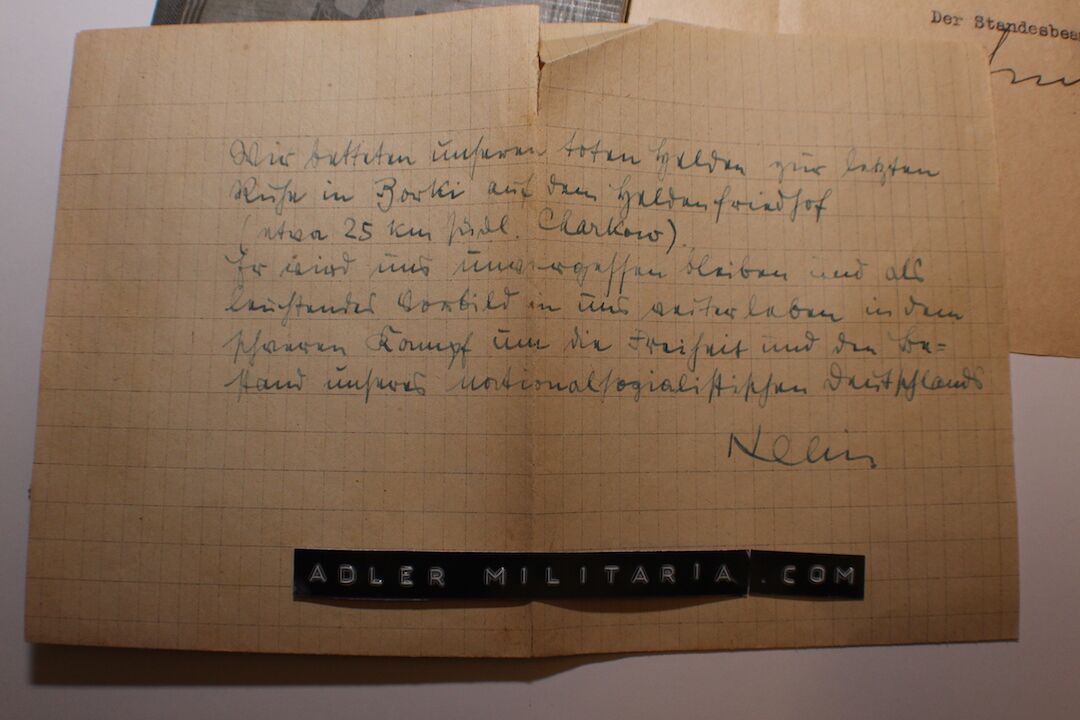 Der Standesbea
Wir betteten unseren toten Helden zur letzten
Ruhe in Borki auf dem Heldenfriedhof
(etwa 25 km südl. Charkow).
Er wird uns unvergessen bleiben und als
leuchtendes Vorbild in uns weiterleben in dem
schweren Kampf um die Freiheit und den Be=
stand unseres nationalsozialistischen Deutschlands
ADLER MILITARIA.COM